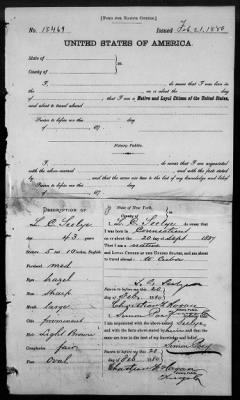 [FORM FOR NATIVE CITIZEN.]
No. 18469 Issued Feb. 21, 1880
UNITED STATES OF AMERICA.
State of
County of
I, do swear that I was born in
on or about the day
of , that I am a Native and Loyal Citizen of the United States,
and about to travel abroad
Sworn to before me this day
of 187
Notary Public.
I, do swear that I am acquainted
with the above-named
and with the facts above stated, and that the same are true to the best of my knowledge and belief
Sworn to before me this day
DESCRIPTION OF
L. C. Seelye
Age 43 years
Stature 5 10
Forehead med
Eyes hazel
Nose sharp
Mouth large
Chin prominent
Hair Light Brown
Complexion fair
Face Oval
State of New York,
County of
I, L. C. Seelye do swear that
I was born in Connecticut
on or about the 20 day of Sept 1837
that I am a native
AND LOYAL CITIZEN OF THE UNITED STATES, and about
to travel abroad to Cuba
Sworn to before me this 20
day of Feb. 1880
I am acquainted with the above-named Seelye
and with the facts
true to the best of my knowledge and belief
Sworn to before me this 20
day of Feb 1880